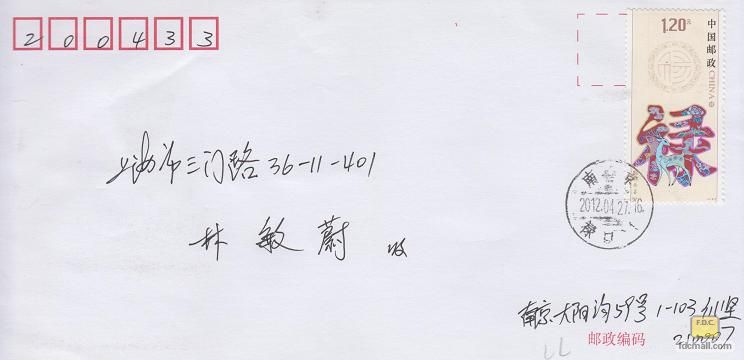 200433
1.20元
中国邮政 CHINA
禄
上海市三门路36-11-401
南京
2012.04.27.16
禄口
林敏蔚 收
南京大阳沟59号1-103
邮政编码
F.D.C.
fdcmall.com